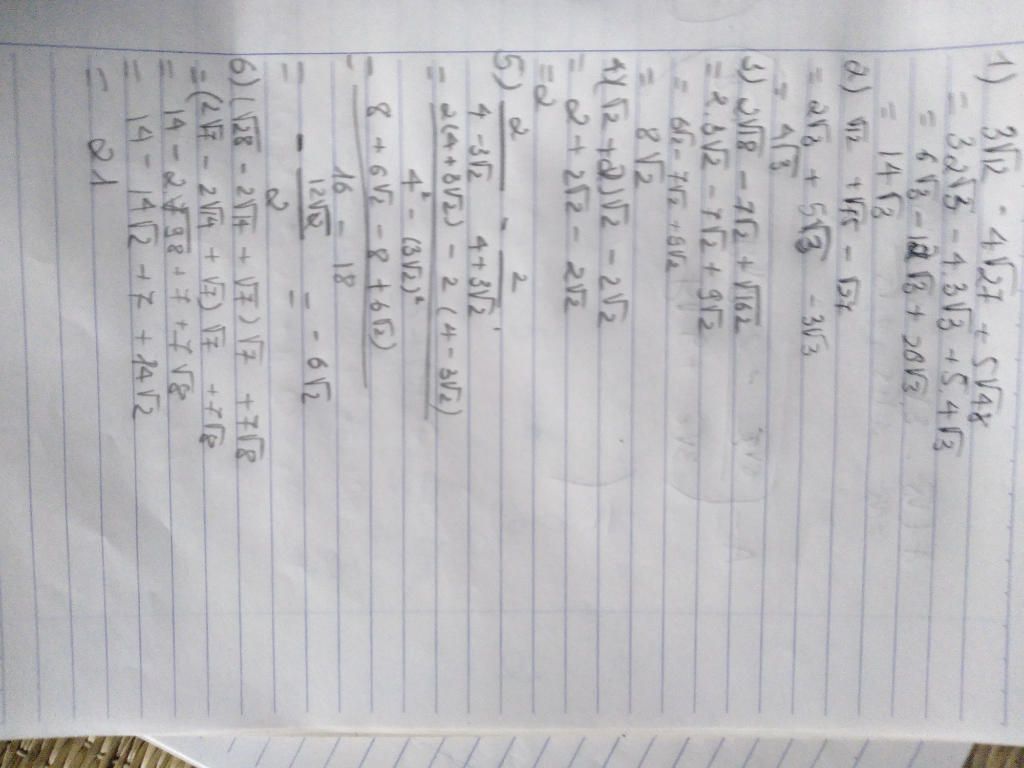 1) 3√12 - 4√27 + 5√48
= 3.2√3 - 4.3√3 + 5.4√3
= 6√3 - 12√3 + 20√3
= 14√3
2) √12 + √75 - √27
= 2√3 + 5√3 - 3√3
= 4√3
3) 2√18 - 7√2 + √162
= 2.3√2 - 7√2 + 9√2
= 6√2 - 7√2 + 9√2
= 8√2
4) (√2 + 2)√2 - 2√2
= 2 + 2√2 - 2√2
= 2
5) 2/(4 - 3√2) - 2/(4 + 3√2)
= (2(4 + 3√2) - 2(4 - 3√2))/(4² - (3√2)²)
= (8 + 6√2 - 8 + 6√2)/(16 - 18)
= - 12√2/2 = - 6√2
6) (√28 - 2√14 + √7)√7 + 7√8
= (2√7 - 2√14 + √7)√7 + 7√8
= 14 - 2√98 + 7 + 7√8
= 14 - 14√2 + 7 + 14√2
= 21